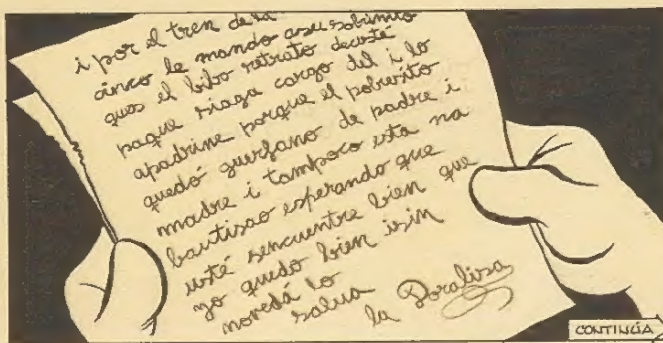 i por el tren de la
cinco le mando asu sobinito
ques el bibo retrato deusté
paque siaga cargo dél i lo
apadrine porque el pobresito
quedó guerfano de padre i
madre i tampoco esta na
bautisao esperando que
usté sencuentre bien que
yo quedo bien isin
novedá lo
salua
la Doralisa
CONTINÚA